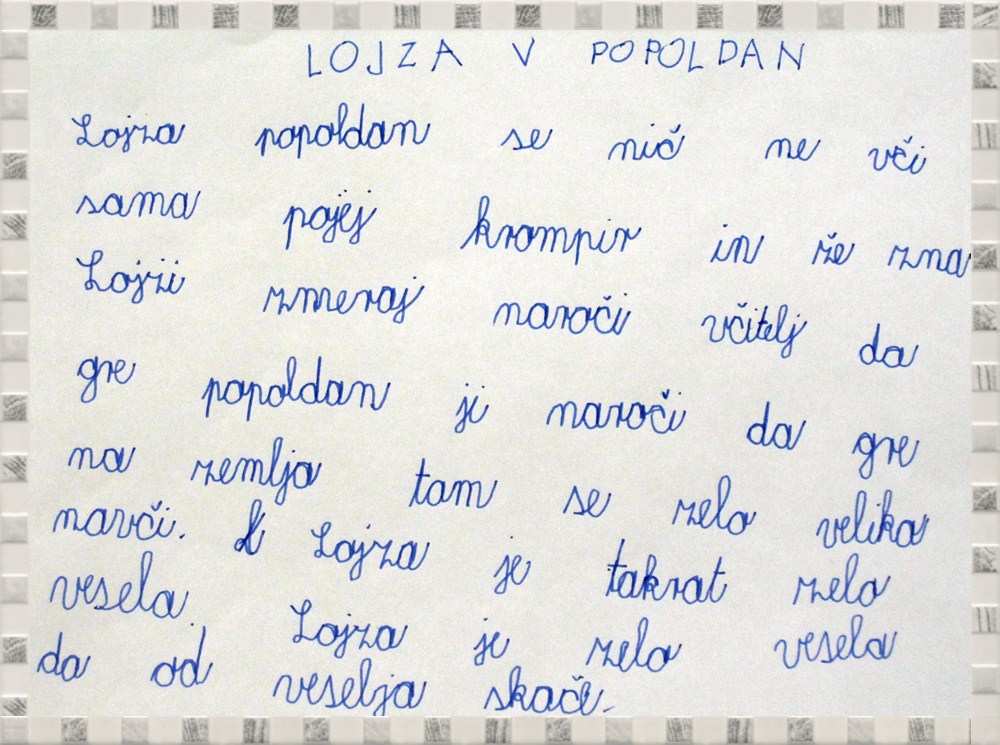 LOJZA V POPOLDAN
Lojza popoldan se nič ne vči
sama pojej krompir in že zna
Lojzi zmeraj naroči včitelj da
gre popoldan ji naroči da gre
na zemlja tam se zelo velika
navči. Lojza je takrat zelo
vesela. Lojza je zelo vesela
da od veselja skače.